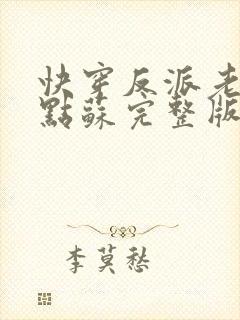 快穿反派老
點蘇完整版
李莫愁